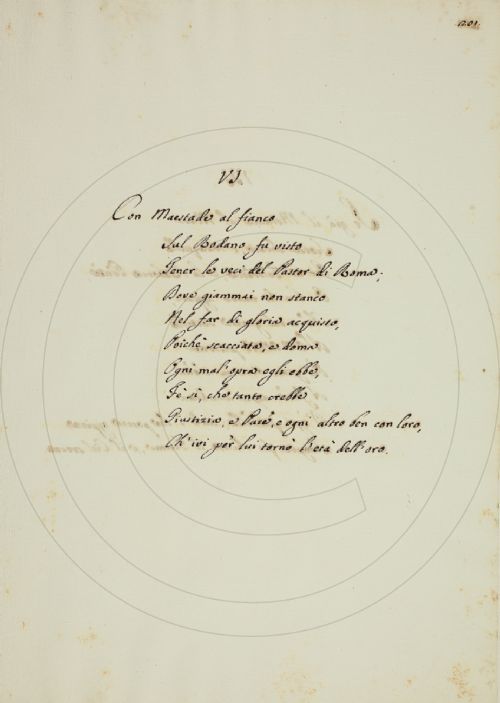 201.
VI
Con Maestade al fianco
Sul Rodano fu visto
Tener le veci del Pastor di Roma;
Dove giammai non stanco
Nel far di gloria acquisto,
Poichè scacciata, e doma
Ogni mal'opra egli ebbe,
Fè sì, che tanto crebbe
Giustizia, e Pace, e ogni altro ben con loro,
Ch'ivi per lui tornò l'età dell'oro.